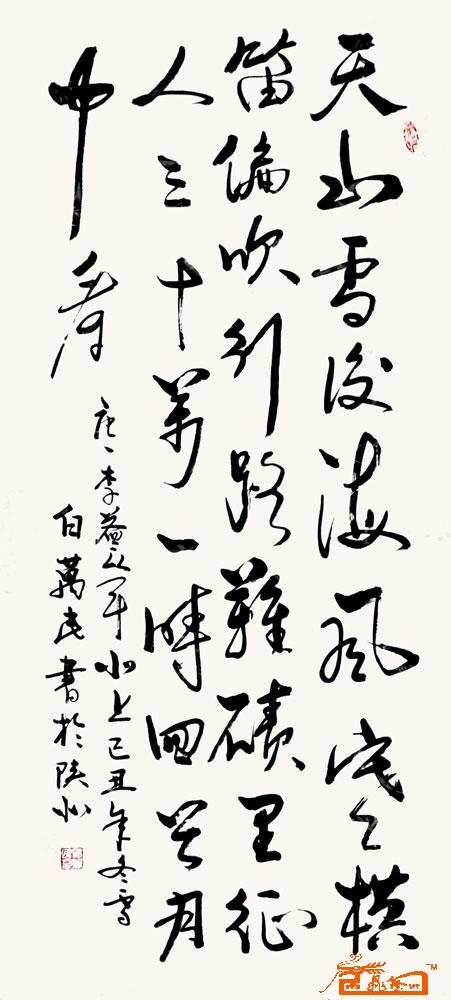 天山雪後海風寒横
笛偏吹行路難磧里征
人三十萬一時回首月
中看
唐、李益从军北上己丑年冬雪
白萬民書於陕北